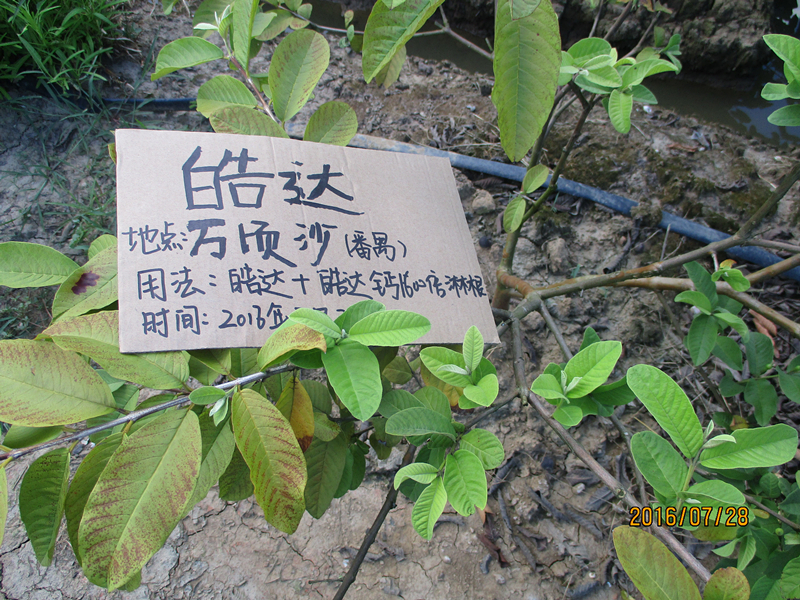 皓达
地点:万顷沙(番禺)
用法:皓达+皓达钙1600倍淋根
时间:2016年
2016/07/28